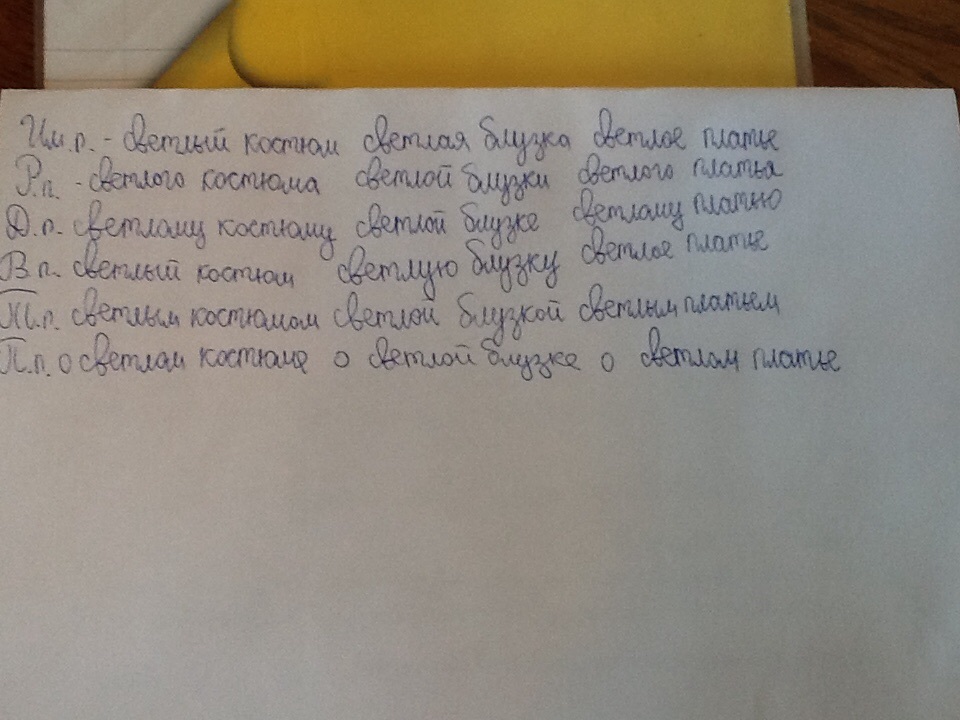 Им.п. - светлый костюм светлая блузка светлое платье
Р.п. - светлого костюма светлой блузки светлого платья
Д.п. светлому костюму светлой блузке светлому платью
В п. светлый костюм светлую блузку светлое платье
Тв.п. светлым костюмом светлой блузкой светлым платьем
П.п. о светлом костюме о светлой блузке о светлом платье